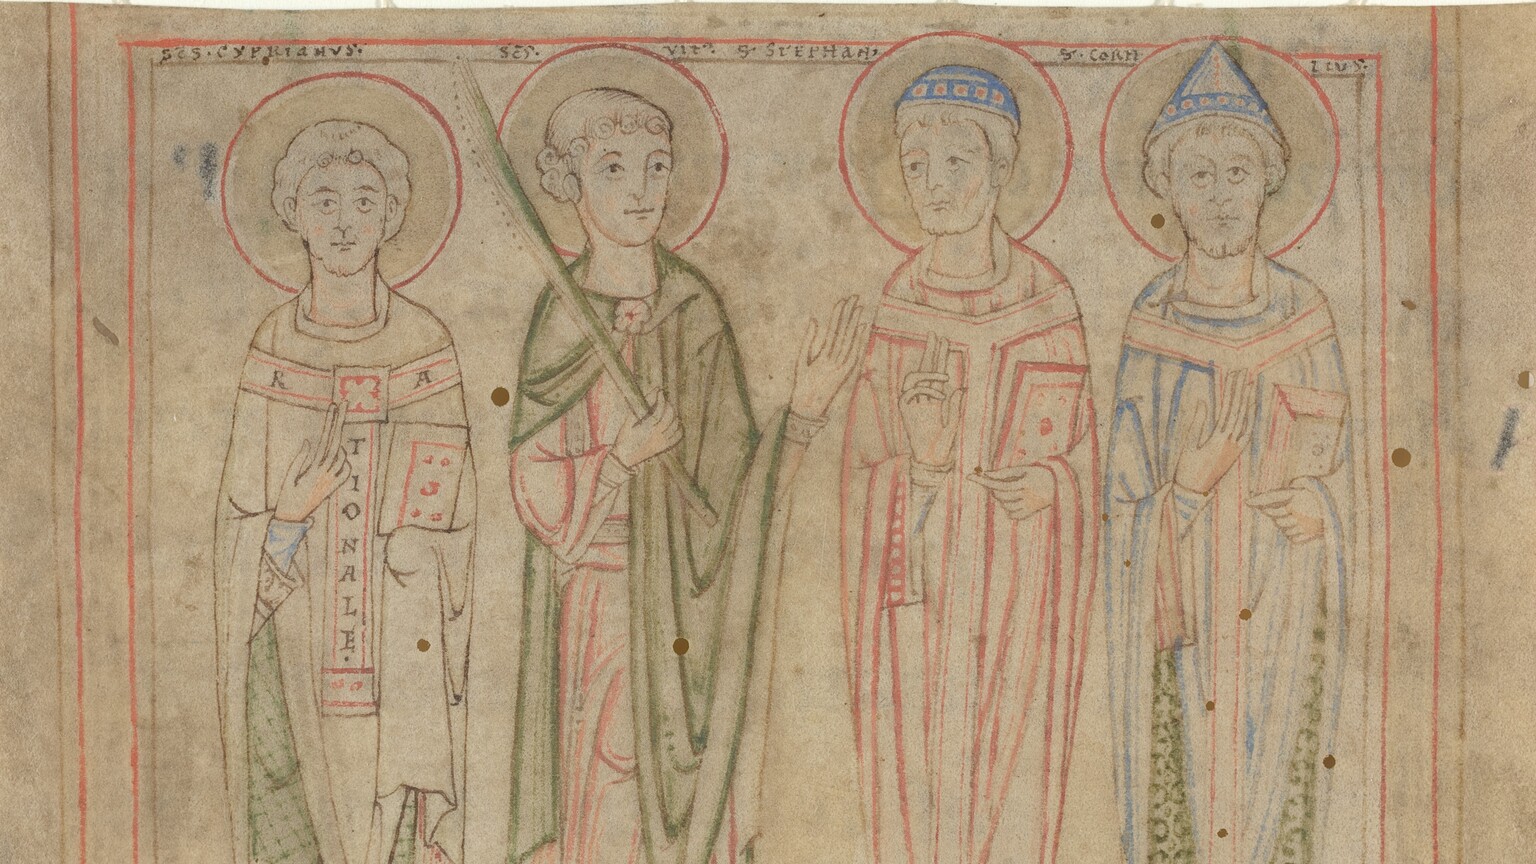 SCS·CYPRIANVS·
SCS· VIT' S·STEPHAN,
S·CORN LIUS·
R A
TIONALE·